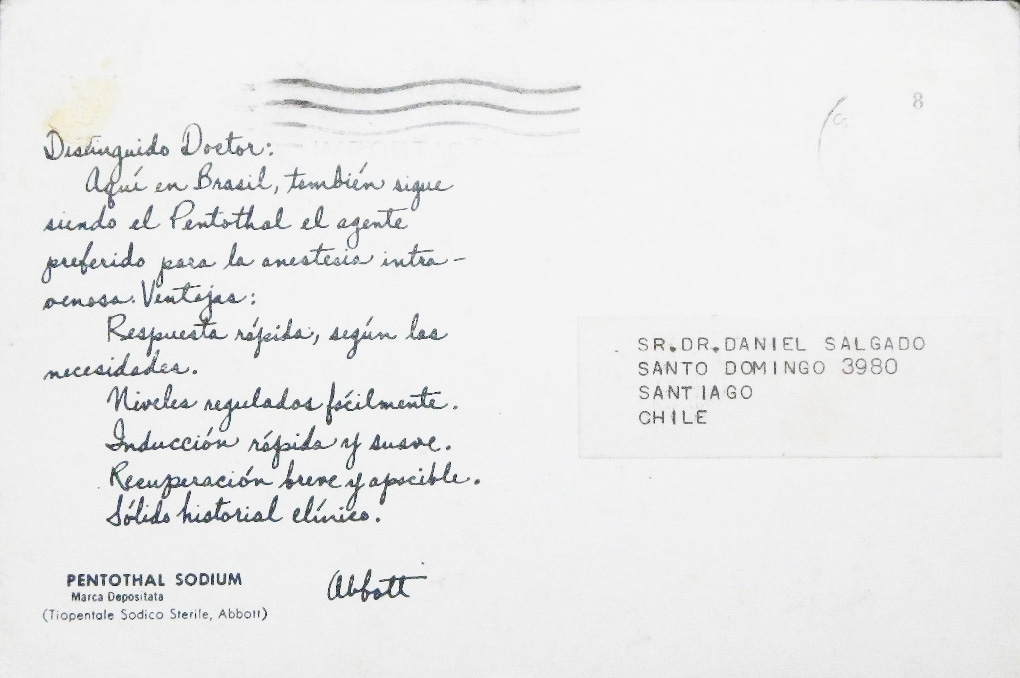 Distinguido Doctor:
Aquí en Brasil, también sigue
siendo el Pentothal el agente
preferido para la anestesia intra-
venosa. Ventajas:
Respuesta rápida, según las
necesidades.
Niveles regulados fácilmente.
Inducción rápida y suave.
Recuperación breve y apacible.
Sólido historial clínico.
Abbott
PENTOTHAL SODIUM
Marca Depositata
(Tiopentale Sodico Sterile, Abbott)
8
SR.DR.DANIEL SALGADO
SANTO DOMINGO 3980
SANTIAGO
CHILE